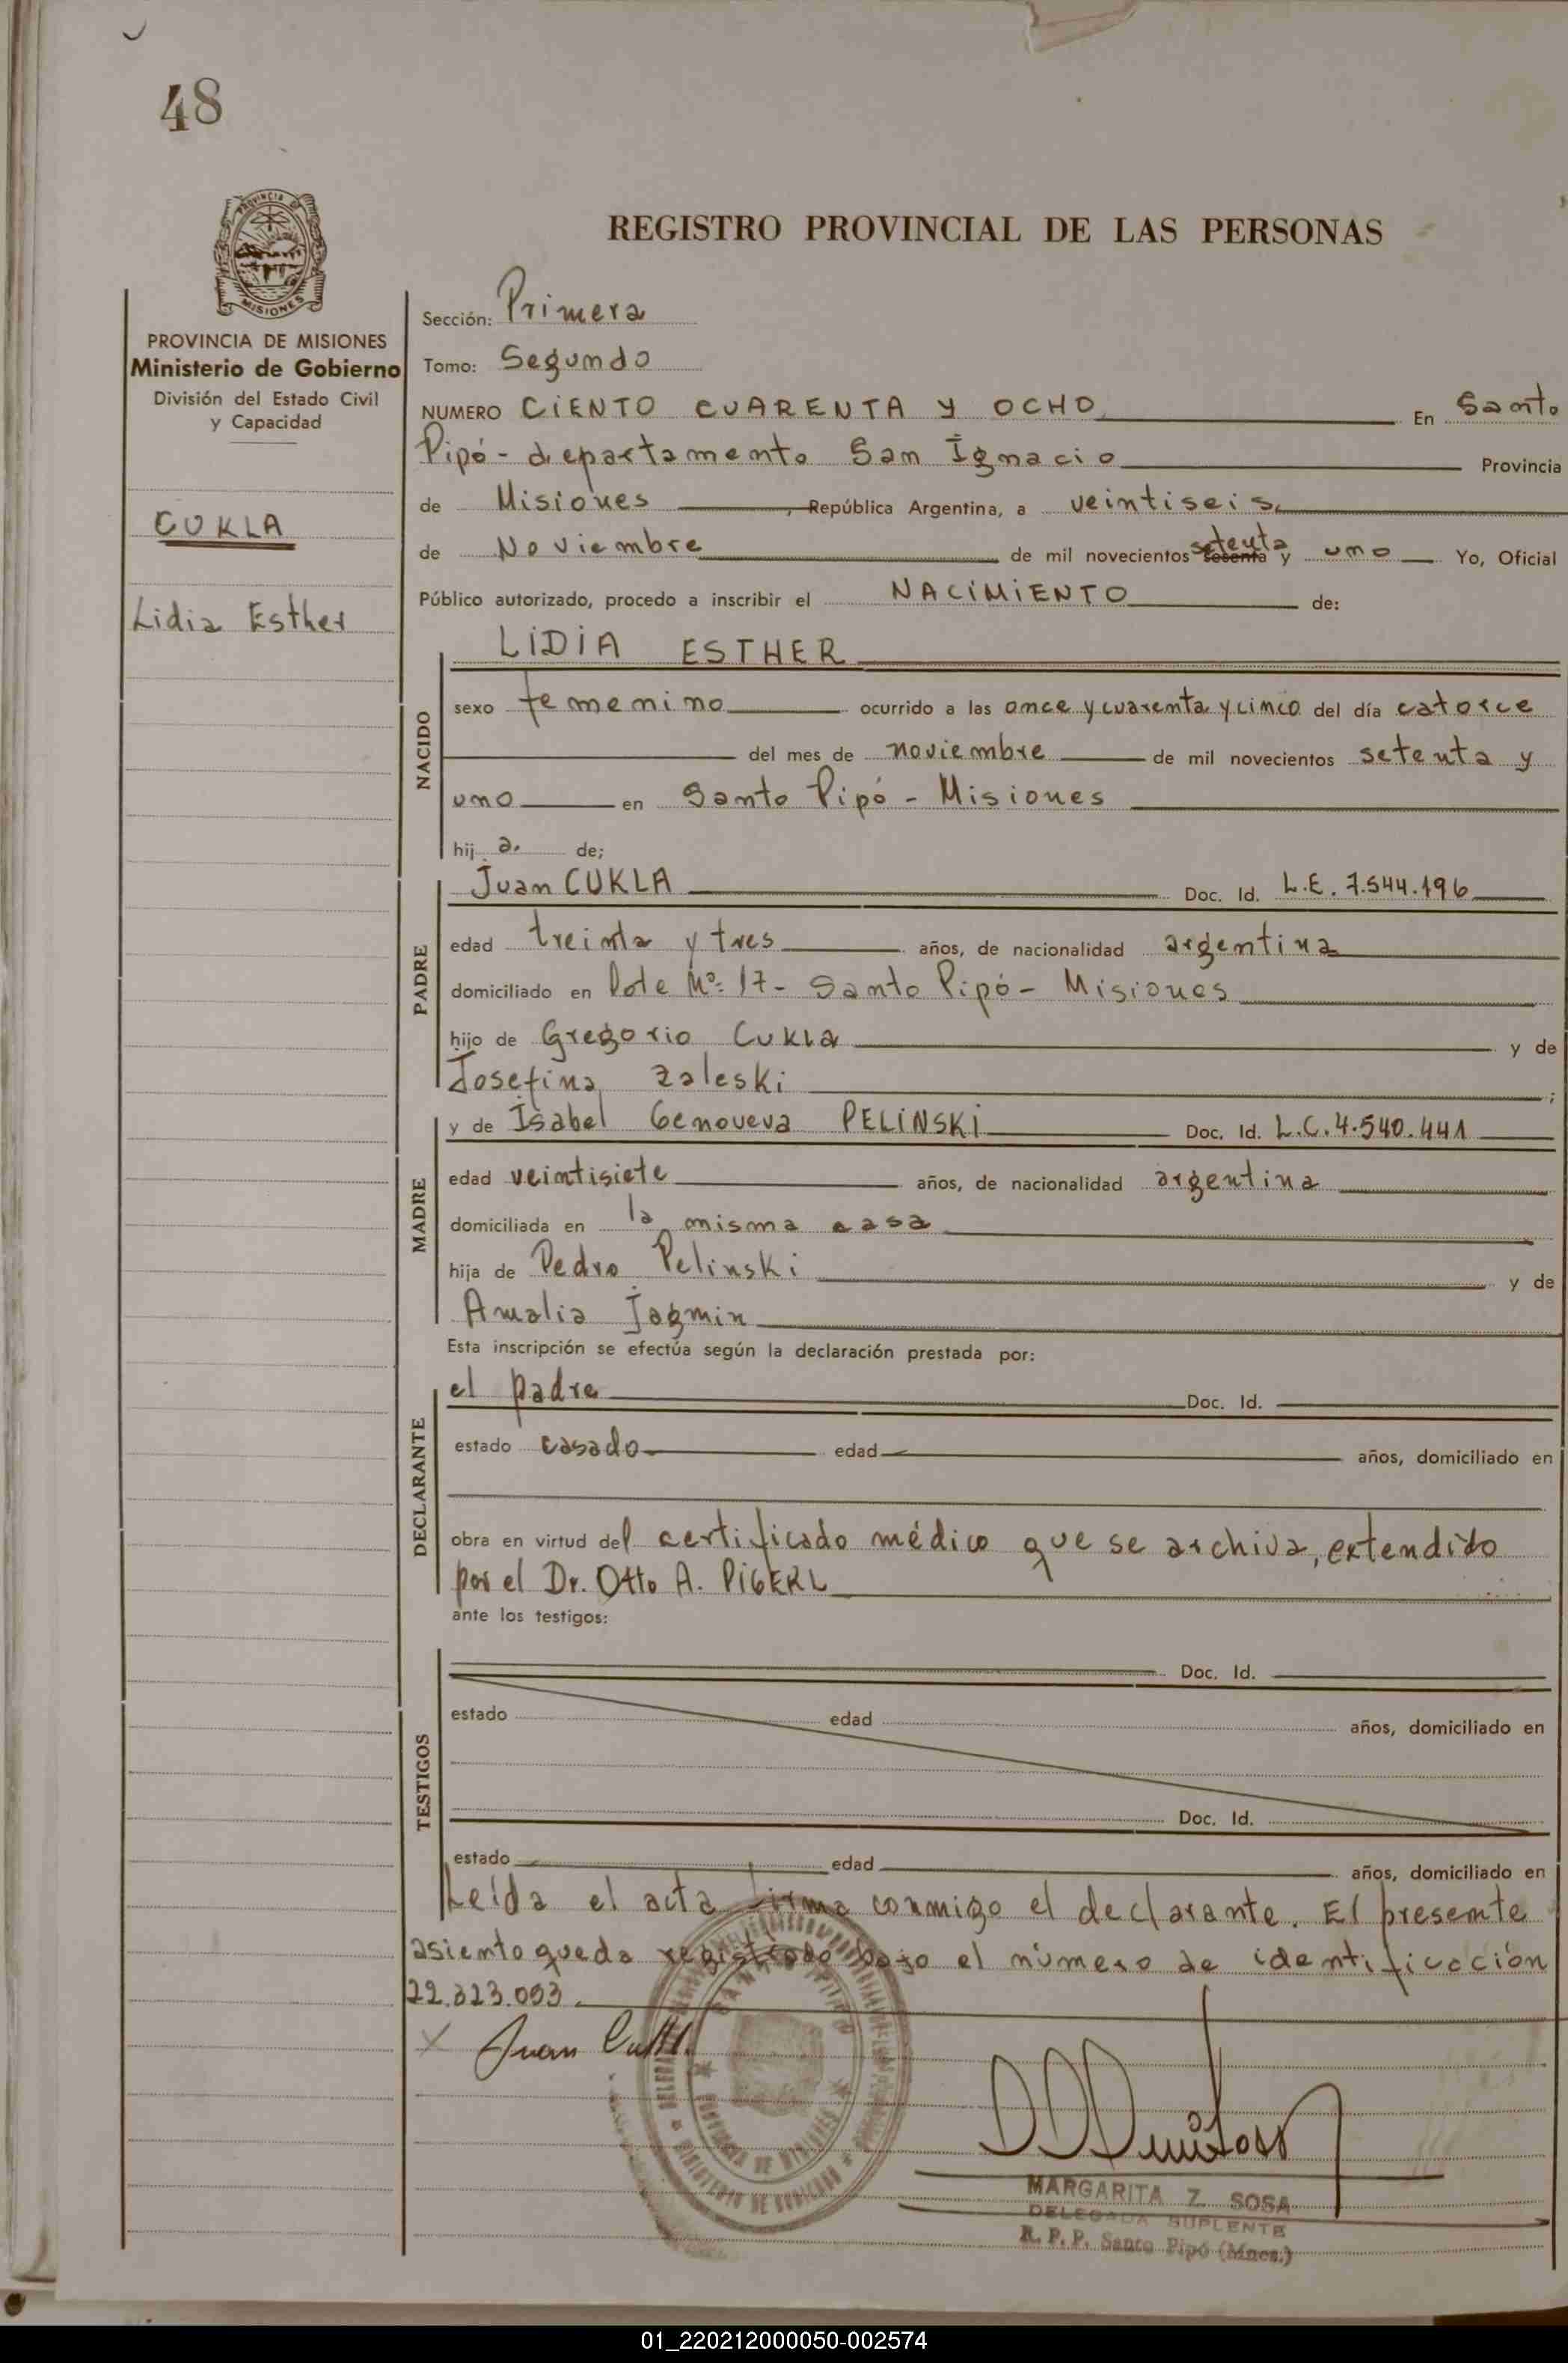 48
REGISTRO PROVINCIAL DE LAS PERSONAS
PROVINCIA DE MISIONES
Ministerio de Gobierno
División del Estado Civil
y Capacidad
CUKLA
Lidia Esther
Sección: Primera
Tomo: Segundo
NUMERO CIENTO CUARENTA Y OCHO En Santo
Pipó - departamento San Ignacio Provincia
de Misiones, República Argentina, a veintiseis
de Noviembre de mil novecientos setenta y uno Yo, Oficial
Público autorizado, procedo a inscribir el NACIMIENTO de:
NACIDO
LIDIA ESTHER
sexo femenino ocurrido a las once y cuarenta y cinco del día catorce
del mes de noviembre de mil novecientos setenta y
uno en Santo Pipó - Misiones
hija de;
PADRE
Juan CUKLA Doc. Id. L.E. 7.544.196
edad treinta y tres años, de nacionalidad argentina
domiciliado en Lote Nº 17 - Santo Pipó - Misiones
hijo de Gregorio Cukla y de
Josefina Zaleski;
MADRE
y de Isabel Genoveva PELINSKI Doc. Id. L.C. 4.540.441
edad veintisiete años, de nacionalidad argentina
domiciliada en la misma casa
hija de Pedro Pelinski y de
Amalia Jagmin
Esta inscripción se efectúa según la declaración prestada por:
DECLARANTE
el padre Doc. Id.
estado casado edad años, domiciliado en
obra en virtud del certificado médico que se archiva, extendido
por el Dr. Otto A. PIGERL
ante los testigos:
TESTIGOS
Doc. Id.
estado edad años, domiciliado en
Doc. Id.
estado edad años, domiciliado en
Leída el acta firma conmigo el declarante. El presente
asiento queda registrado bajo el número de identificación
22.323.053
x Juan
MARGARITA Z. SOSA
DELEGADA SUPLENTE
R. P. P. Santo Pipó (Mnes.)
01_220212000050-002574